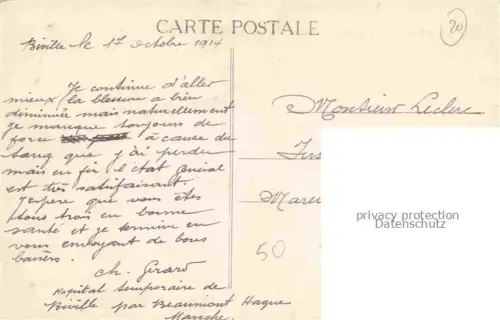 CARTE POSTALE
20
Biville le 17 octobre 1914
Je continue d'aller
mieux (la blessure a bien
diminuée mais naturellement
je manque toujours de
force à cause du
sang que j'ai perdu
mais en fin l'état général
est très satisfaisant.
J'espère que vous êtes
tous trois en bonne
santé et je termine en
vous envoyant de bons
baisers.
Ch. Girard
Hopital temporaire de
Biville par Beaumont Hague
Manche.
Monsieur Leclerc
privacy protection
Datenschutz
50